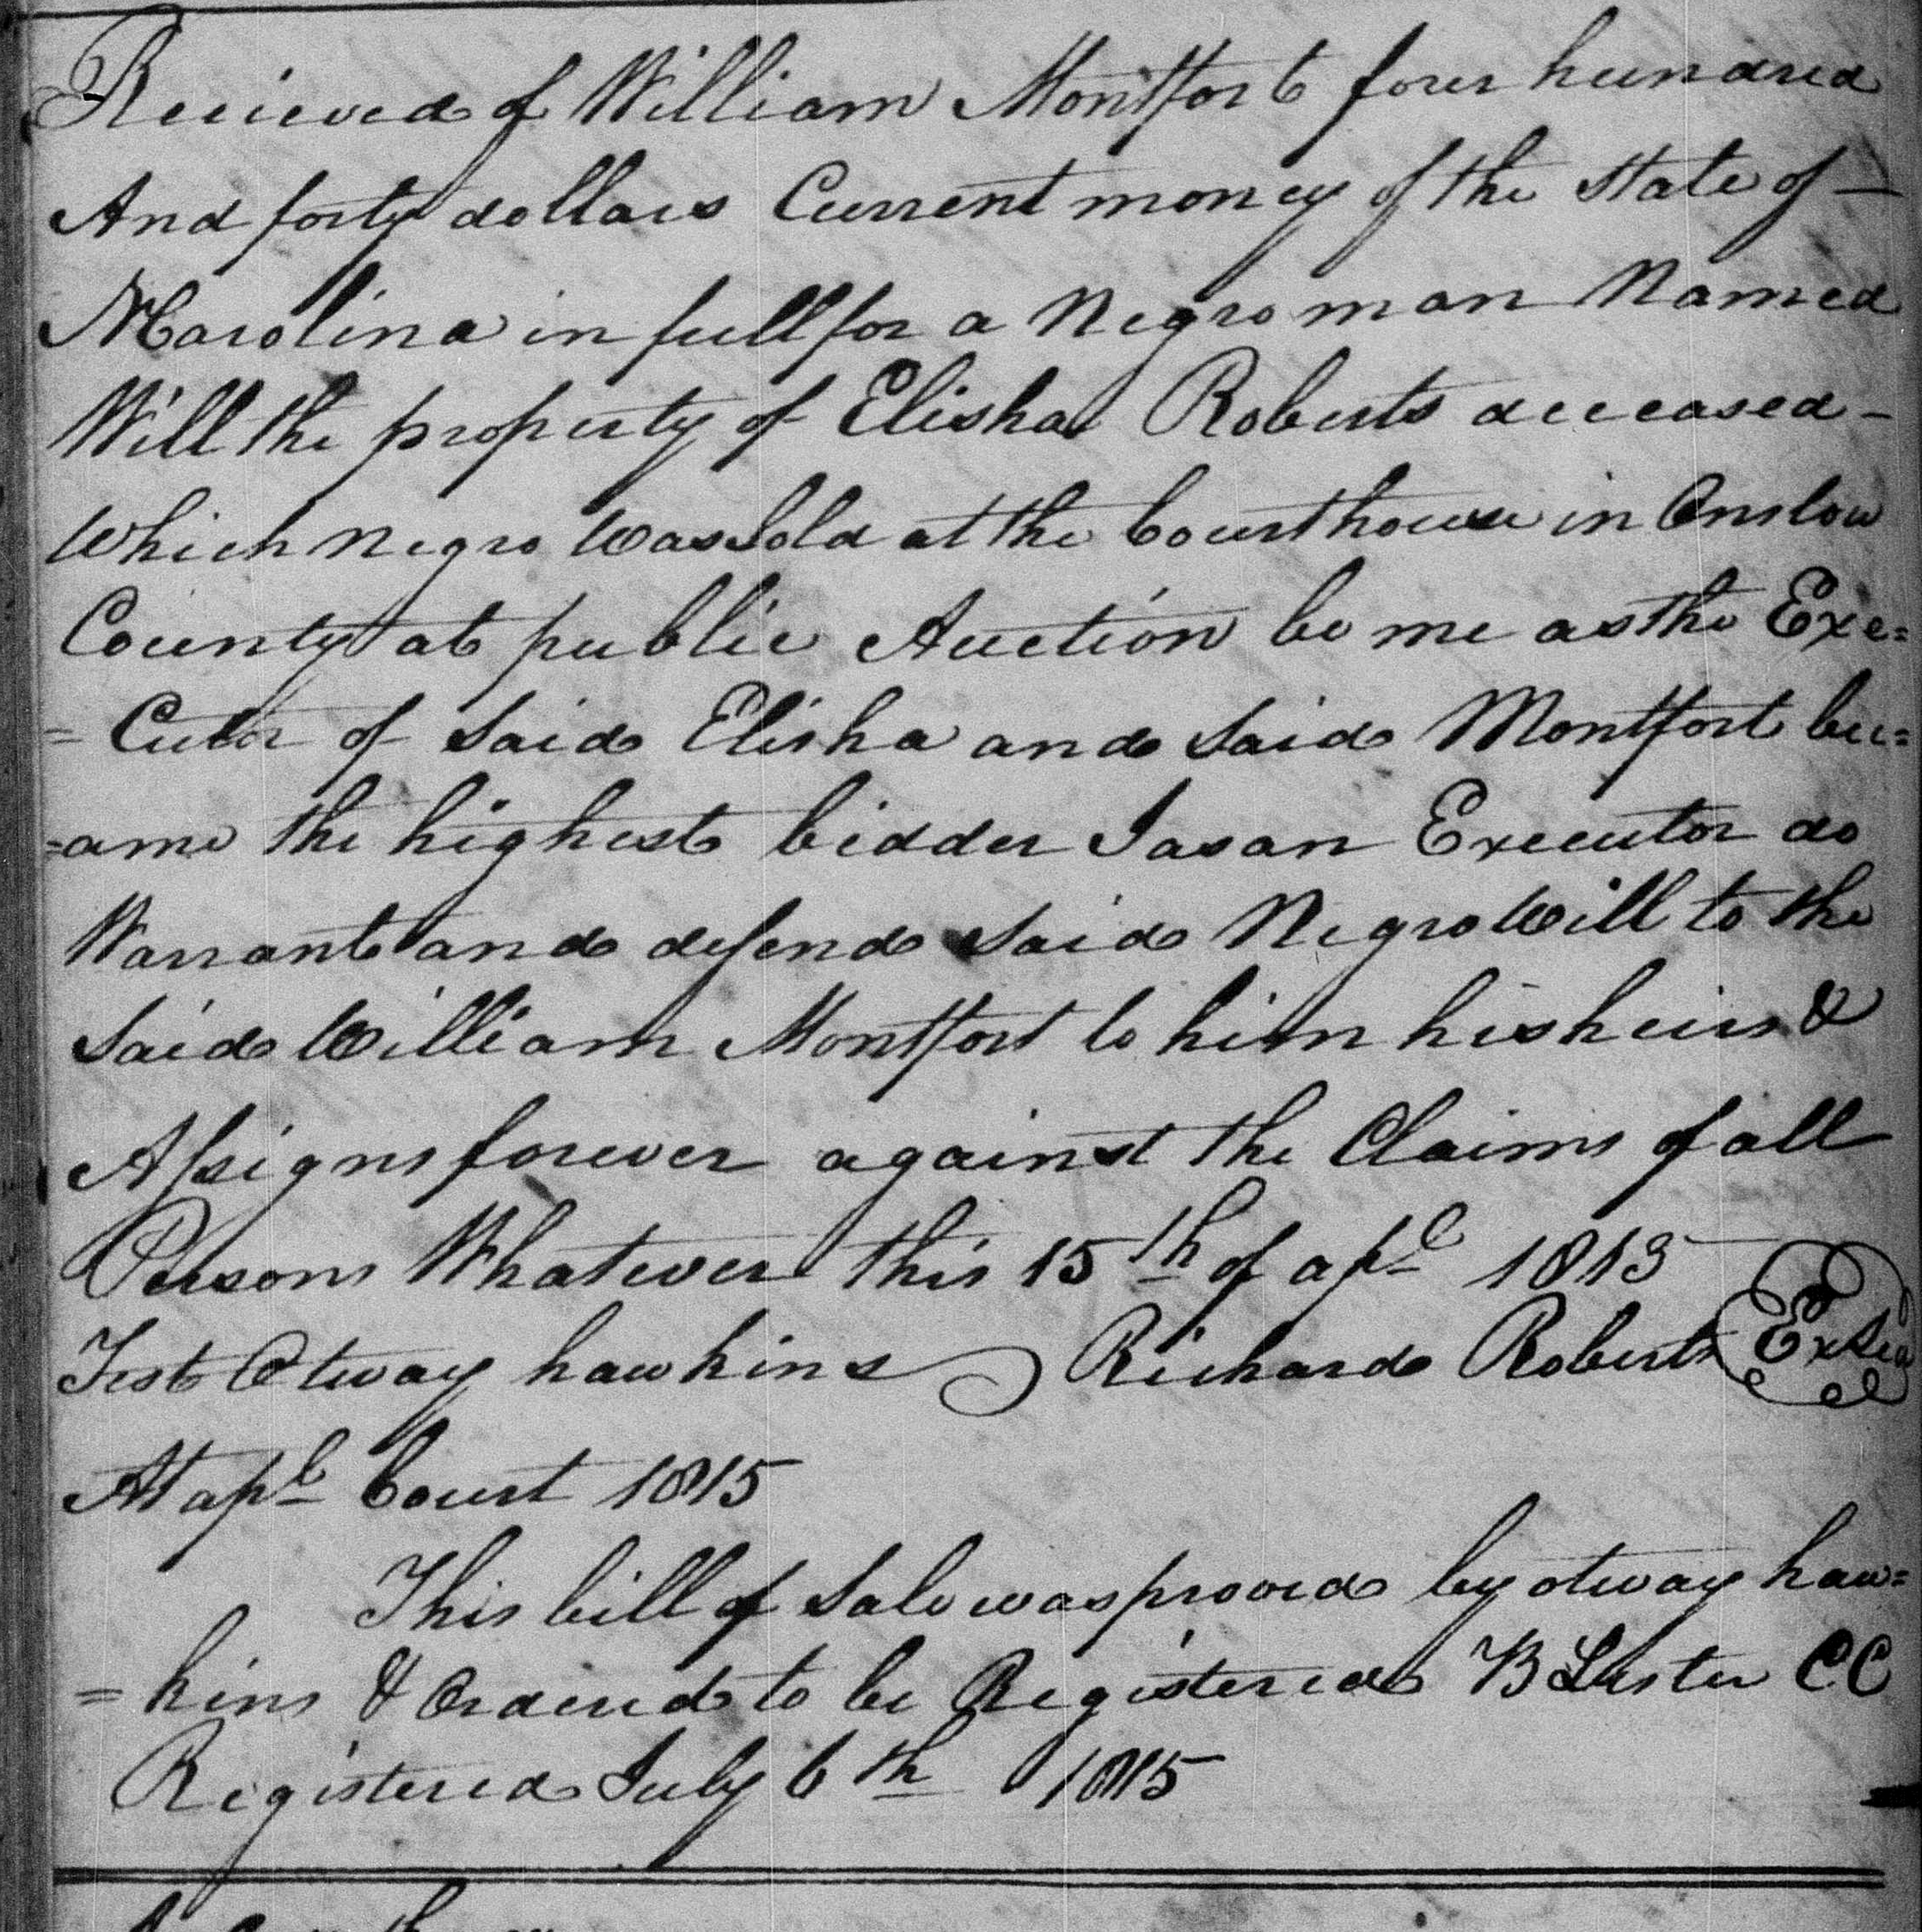 Recieved of William Montfort four hundred
And forty dollars Current money of the State of —
N Carolina in full for a Negro man Named
Will the property of Elisha Roberts deceased —
Which Negro Was Sold at the Courthouse in Onslow
County at public Auction be me as the Exe=
= Cutor of Said Elisha and Said Montfort bec=
=ame the highest bidder I as an Executor do
Warrant and defend Said Negro Will to the
Said William Montfort to him his heirs &
Assigns forever against the Claims of all
Persons Whatever this 15th of apl 1813
Test Otway hawkins Richard Roberts Seal
At apl Court 1815
This bill of Sale was proved by otway haw=
= kins & Ordered to be Registered B Lester CC
Registered July 6th 1815